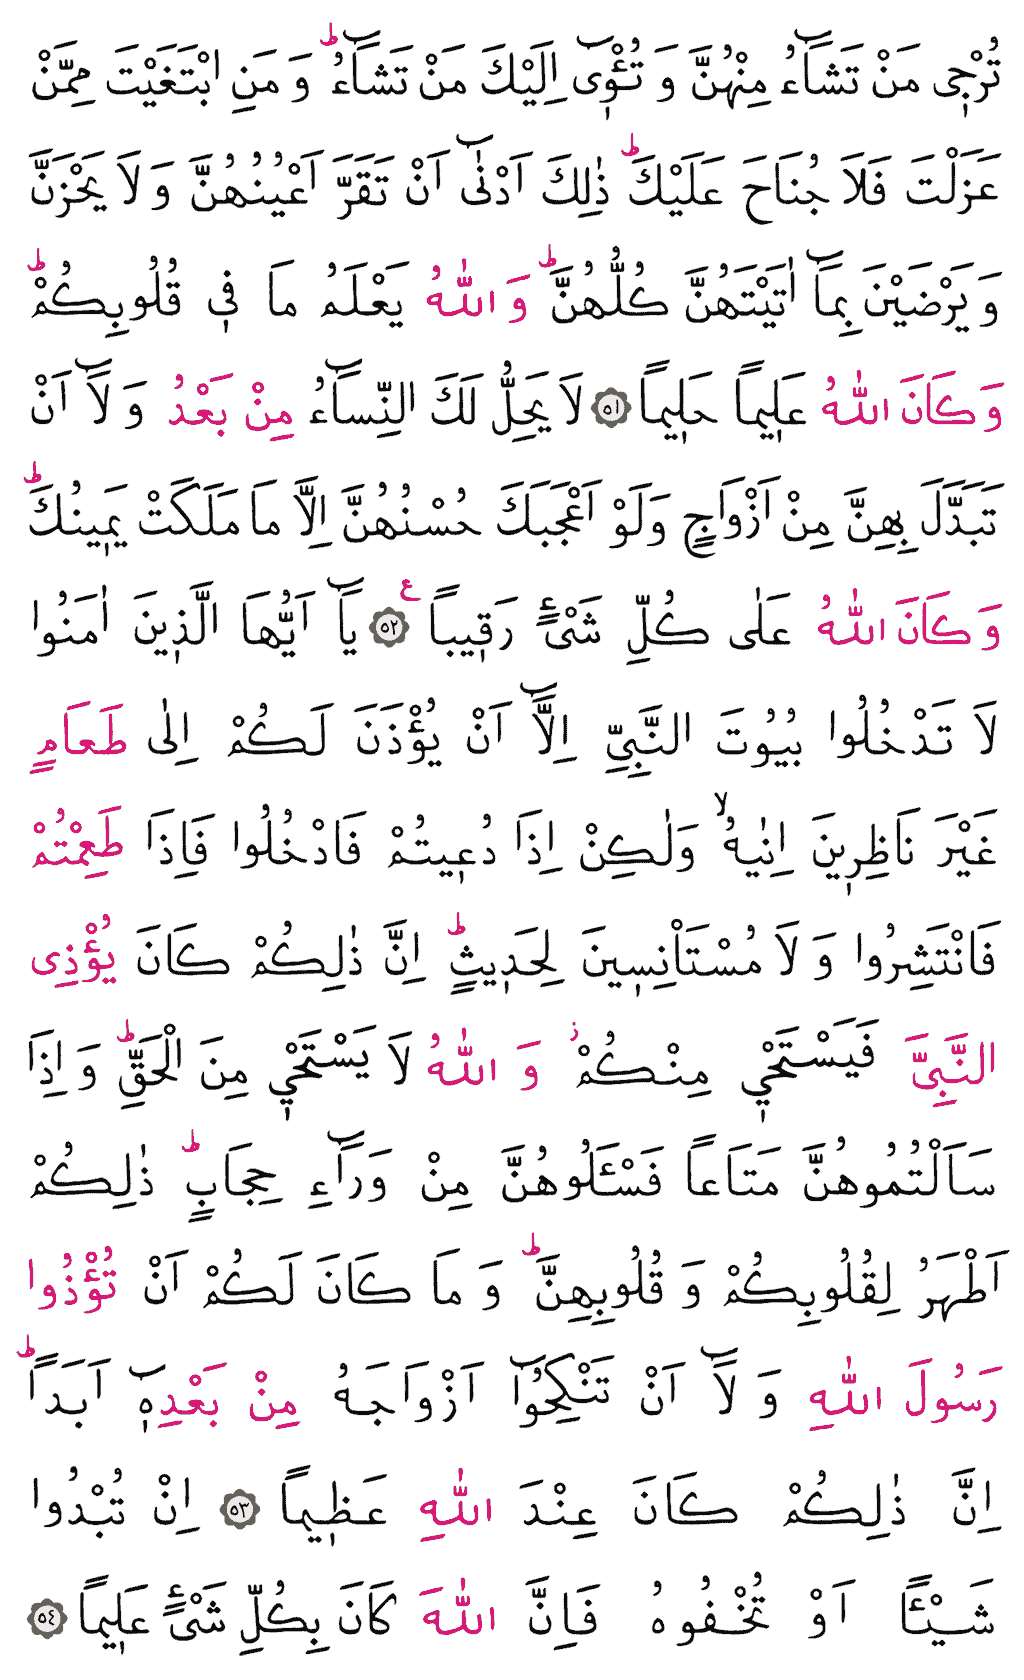 تُرْج۪ي مَنْ تَشَٓاءُ مِنْهُنَّ وَ تُـْٔو۪ٓى اِلَيْكَ مَنْ تَشَٓاءُ ؕ وَ مَنِ ابْتَغَيْتَ مِمَّنْ
عَزَلْتَ فَلَا جُنَاحَ عَلَيْكَ ؕ ذٰلِكَ اَدْنٰٓى اَنْ تَقَرَّ اَعْيُنُهُنَّ وَ لَا يَحْزَنَّ
وَ يَرْضَيْنَ بِمَٓا اٰتَيْتَهُنَّ كُلُّهُنَّ ؕ وَ اللّٰهُ يَعْلَمُ مَا ف۪ي قُلُوبِكُمْ ؕ
وَ كَانَ اللّٰهُ عَل۪يماً حَل۪يماً ﴿٥١﴾ لَا يَحِلُّ لَكَ النِّسَٓاءُ مِنْ بَعْدُ وَ لَٓا اَنْ
تَبَدَّلَ بِهِنَّ مِنْ اَزْوَاجٍ وَلَوْ اَعْجَبَكَ حُسْنُهُنَّ اِلَّا مَا مَلَكَتْ يَم۪ينُكَ ؕ
وَ كَانَ اللّٰهُ عَلٰى كُلِّ شَىْءٍ رَق۪يباً ﴿٥٢﴾ ع يَٓا اَيُّهَا الَّذ۪ينَ اٰمَنُوا
لَا تَدْخُلُوا بُيُوتَ النَّبِىِّ اِلَّٓا اَنْ يُؤْذَنَ لَكُمْ اِلٰى طَعَامٍ
غَيْرَ نَاظِر۪ينَ اِنٰيهُ ۙ وَلٰكِنْ اِذَا دُع۪يتُمْ فَادْخُلُوا فَاِذَا طَعِمْتُمْ
فَانْتَشِرُوا وَ لَا مُسْتَاْنِس۪ينَ لِحَد۪يثٍ ؕ اِنَّ ذٰلِكُمْ كَانَ يُؤْذِى
النَّبِىَّ فَيَسْتَحْي۪ مِنْكُمْ ز وَ اللّٰهُ لَا يَسْتَحْي۪ مِنَ الْحَقِّ ؕ وَ اِذَا
سَاَلْتُمُوهُنَّ مَتَاعاً فَسْـَٔلُوهُنَّ مِنْ وَرَٓاءِ حِجَابٍ ؕ ذٰلِكُمْ
اَطْهَرُ لِقُلُوبِكُمْ وَ قُلُوبِهِنَّ ؕ وَ مَا كَانَ لَكُمْ اَنْ تُؤْذُوا
رَسُولَ اللّٰهِ وَ لَٓا اَنْ تَنْكِحُٓوا اَزْوَاجَهُ مِنْ بَعْدِه۪ٓ اَبَداً ؕ
اِنَّ ذٰلِكُمْ كَانَ عِنْدَ اللّٰهِ عَظ۪يماً ﴿٥٣﴾ اِنْ تُبْدُوا
شَيْـًٔا اَوْ تُخْفُوهُ فَاِنَّ اللّٰهَ كَانَ بِكُلِّ شَىْءٍ عَل۪يماً ﴿٥٤﴾